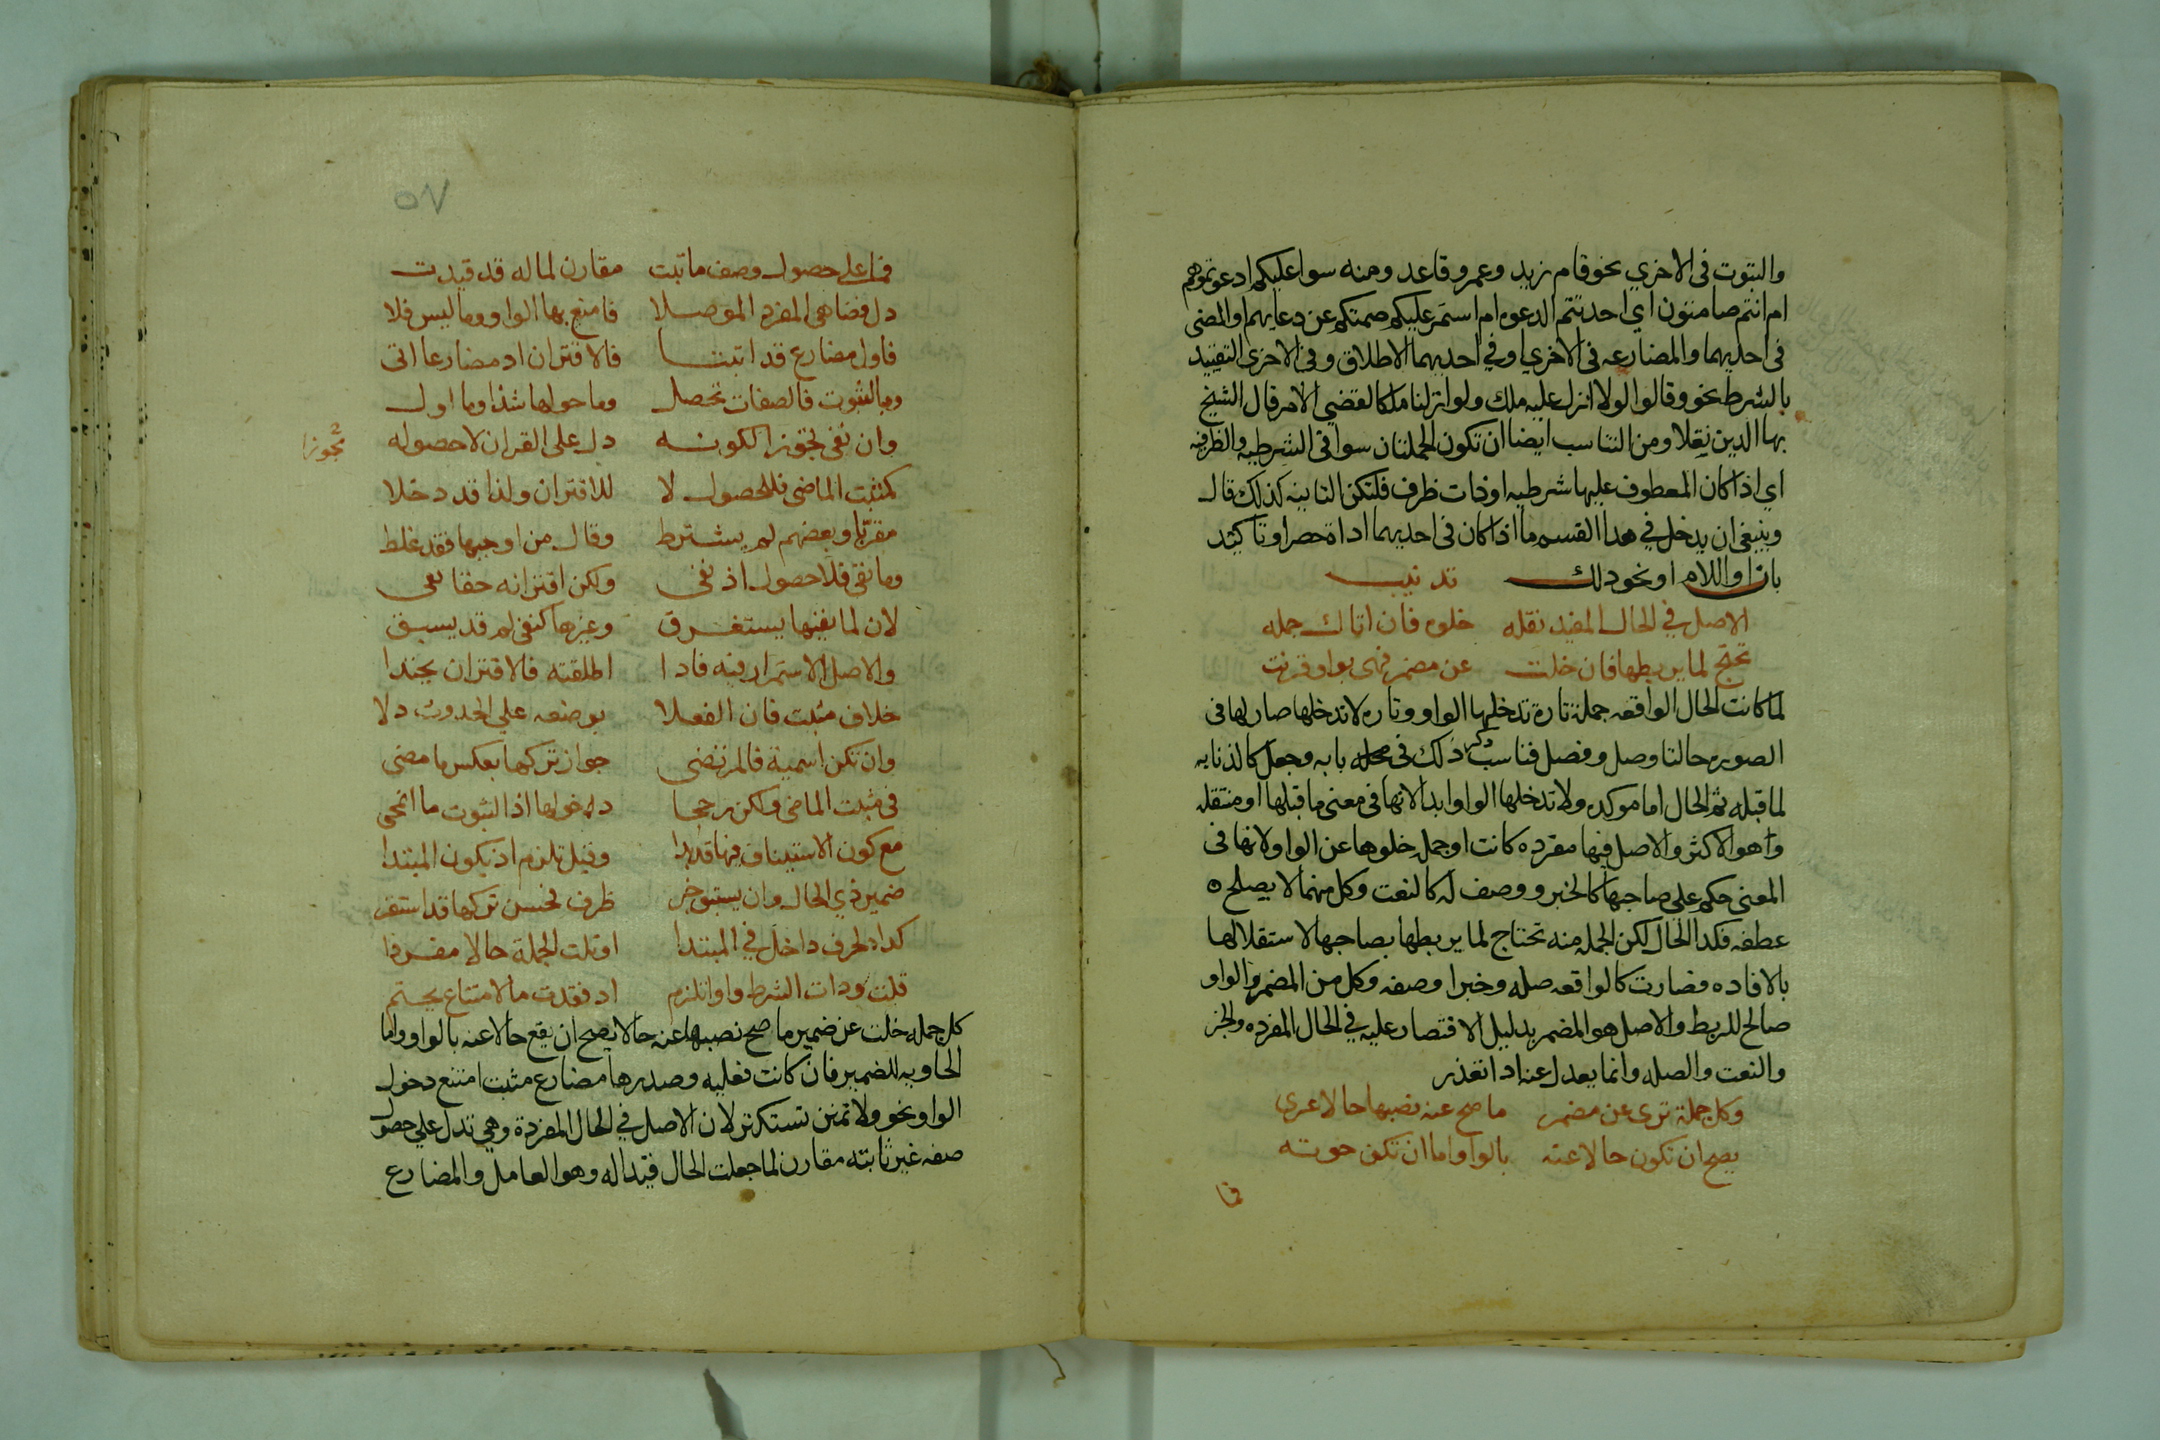 والثبوت في الاخري نحو قام زيد وعمرو قاعد ومنه سوا عليكم ادعوتموهم
ام انتم صامتون اي احدثتم الدعوه ام استمر عليكم صمتكم عن دعايهم او المضي
في احديهما والمضارعه في الاخري او في احديهما الاطلاق وفي الاخري التقييد
بالشرط نحو وقالوا لولا انزل عليه ملك ولو انزلنا ملكا لقضي الامر قال الشيخ
بها الدين نقلا ومن التناسب ايضا ان تكون الجملتان سوا في الشرطيه والظرفيه
اي اذا كان المعطوف عليها شرطيه او ذات ظرف فلتكن الثانيه كذلك قال
وينبغي ان يدخل في هدا القسم ما اذا كان في احديهما اداة حصر او تاكيد
بان او اللام او نحو دلك تدنيب
الاصل في الحال المفيد نقله خلوه فان اتاك جمله
تحتج لما يربطها فان خلت عن مضمر فهى بواو قرنت
لما كانت الحال الواقعه جملة تارة تدخلها الواو وتاره لا تدخلها صار لها في
الصوره حالتا وصل وفصل فناسب ذكر ذلك في محله بابه وجعل كالذنابه
لما قبله ثم الحال اما موكده ولا تدخلها الواو ابدا لانها في معنى ما قبلها او منتقله
وهو الاكثر والاصل فيها مفرده كانت او جمله خلوها عن الواو لانها في
المعنى حكم على صاحبها كالخبر ووصف له كالنعت وكل منهما لا يصلح
عطفه فكدا الحال لكن الجمله منه تحتاج لما يربطها بصاحبها لاستقلالها
بالافاده فصارت كالواقعه صله وخبرا وصفه وكل من المضمر والواو
صالح للربط والاصل هو المضمر بدليل الاقتصار عليه في الحال المفرده والخبر
والنعت والصله وانما يعدل عنه ادا تعذر
وكل جملة ترى عن مضمر ما صح عنه نصبها حالا عرى
يصح ان تكون حالا عنه بالواو اما ان تكن حوته
فما
٥٧
فما على حصول وصف ما ثبت مقارن لما له قد قيدت
دل فضاهى المفرد الموصلا فامنع بها الواو وما ليس فلا
فاول مضارع قد اثبتا فالاقتران اد مضارعا اتى
وبالثبوت فالصفات تحصل وما حولها شذ او ما اول
وان نفي تجوز الكونه دل على القران لا حصوله
تجوزا
كمثبت الماضى فللحصول لا للاقتران ولذا قد دخلا
مقربا وبعضهم لم يشترط وقال من اوجبها فقد غلط
وما نفي فلا حصول اذ نفي ولكن اقترانه حقا يفى
لان لما نفيها يستغرق وغيرها كنفي لم قد يسبق
والاصل الاستمرار فيه فادا اطلقته فالاقتران يحتدا
خلاف مثبت فان الفعلا بوضعه على الحدوث دلا
وان تكن اسمية فالمرتضى جواز تركها بعكس ما مضى
في مثبت الماضى ولكن رجحا دخولها اذ الثبوت ما انمحى
مع كون الاستيناف فيها قد بدا وقيل تلزم اذ يكون المبتدا
ضمير ذي الحال وان يسبق خبر ظرف فحسن تركها قد استقر
كدا لحرف داخل في المبتدا او تلت الجملة حالا مفردا
قلت وذات الشرط واوا تلزم اد فقدت مالامتناع يحتم
كل جمله خلت عن ضمير ما صح نصبها عنه حالا يصح ان يقع حالا عنه بالواو واما
الحاويه للضمير فان كانت فعليه وصدرها مضارع مثبت امتنع دخول
الواو نحو ولا تمنن تستكثر لان الاصل في الحال المفردة وهي تدل على حصول
صفه غير ثابته مقارن لما جعلت الحال قيدا له وهو العامل والمضارع